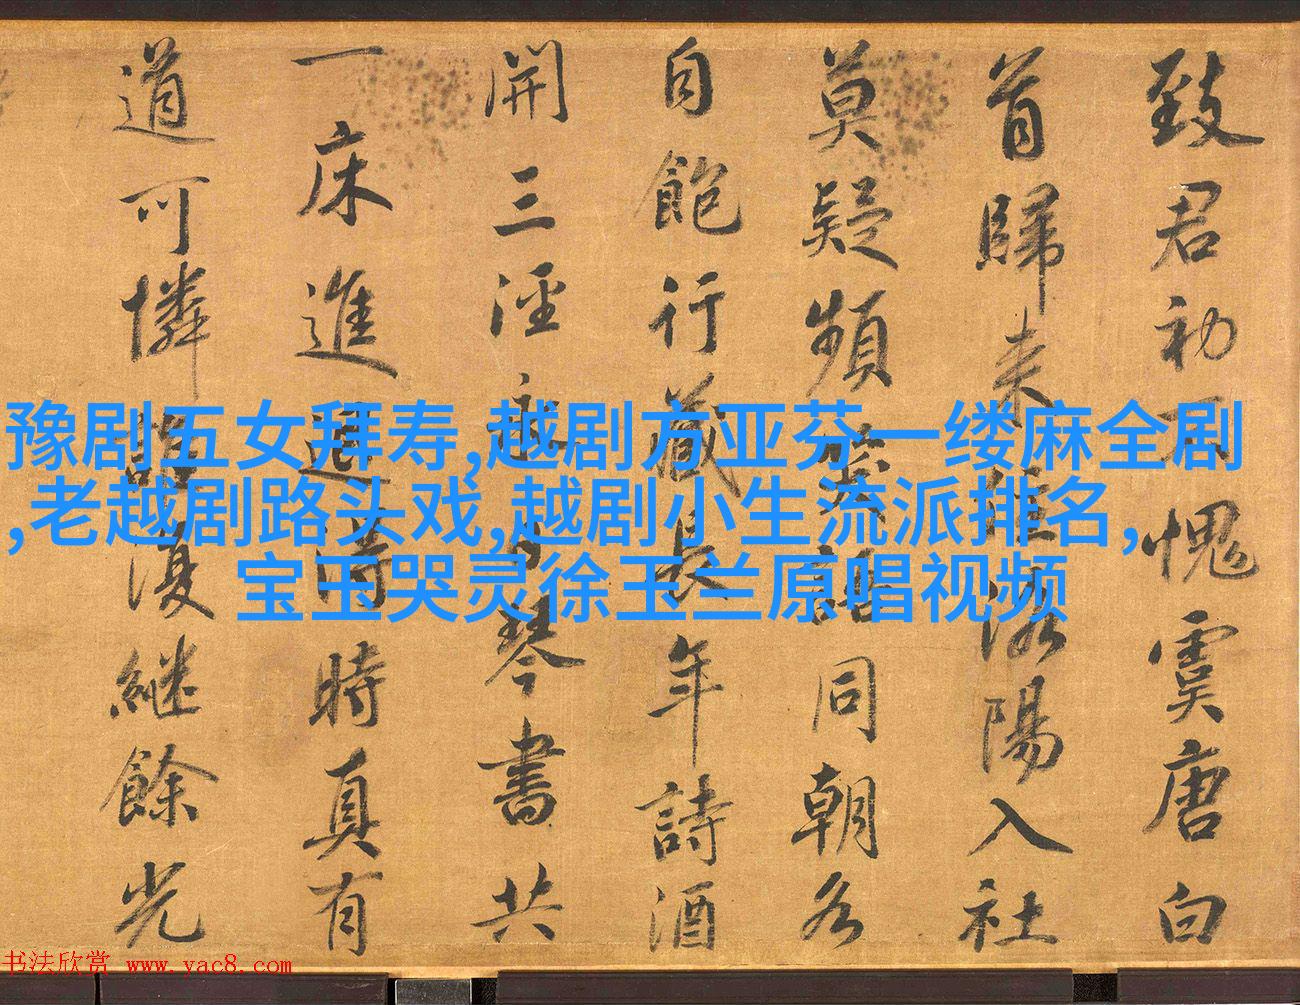 致君初不愧虞唐白
首歸来洛陽入社
莫疑頻笑語同朝各
自飽行藏長年詩酒
開三涇永日琴書共
一床進退得時真有
道可憐復繼餘光
豫剧五女拜寿,越剧方亚芬一缕麻全剧
,老越剧路头戏,越剧小生流派排名,
宝玉哭灵徐玉兰原唱视频
书法欣赏 www.yac8.com